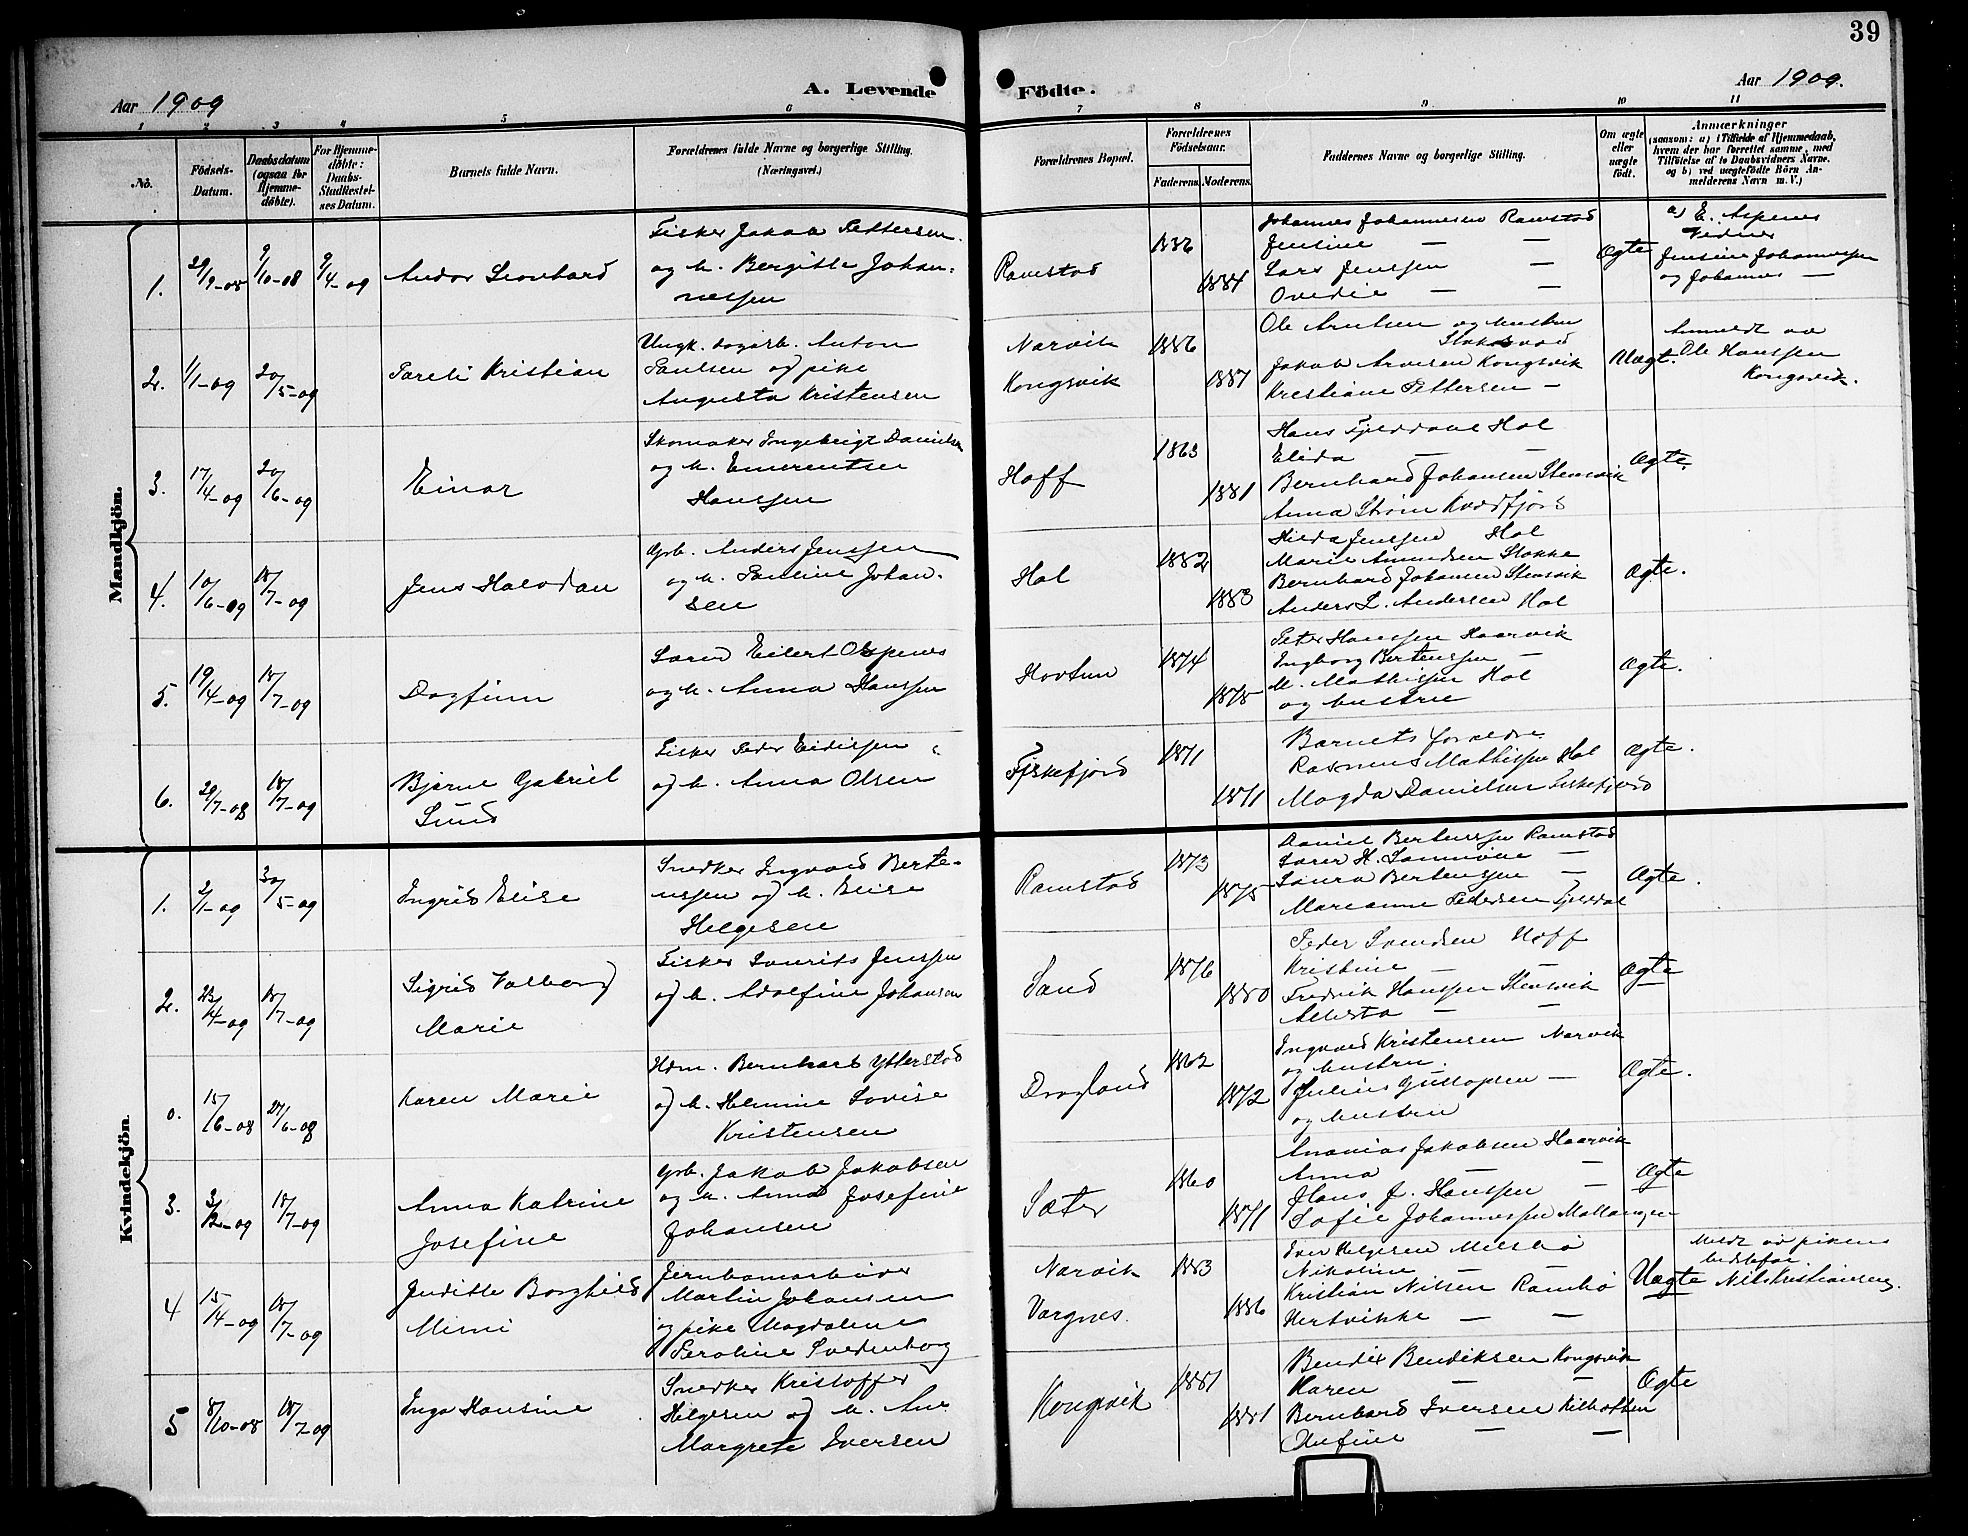 39
Aar 1909
A. Levende
Fødte.
Aar 1909.
1 2 3 4 5 6 7 8 9 10 11
No.
Födsels-
Datum.
Daabsdatum
(ogsaa for
Hjemme-
döbte).
For Hjemme-
döbte:
Daabs-
Stadfæstel-
ses Datum.
Barnets fulde Navn.
Forældrenes fulde Navne og borgerlige Stilling.
(Næringsvei.)
Forældrenes Bopæl.
Forældrenes
Födselsaar.
Faderens. Moderens.
Faddernes Navne og borgerlige Stilling.
Om ægte
eller
uægte
födt.
Anmærkninger
(saasom: a) i Tilfælde af Hjemmedaab,
hvem der har forrettet samme, med
Tilföielse af to Daabsvidners Navne.
og b) ved uægtefödte Börn An-
melderens Navn m. V.)
Mandkjön.
1. 29/9-08 9/10-08 9/4-09 Andor Leonhard
Fisker Jakob Pettersen
og h. Bergitte Johan-
nessen
Ramstad 1886 1884
Johannes Johannesen Ramstad
Jensine — —
Lars Jenssen —
Ovedie — —
Ægte
a) E. Aspenes
Vidner
Jensine Johannessen
og Johannes —
2. 1/1-09 20/5-09 Pareli Kristian
Ungk. dagarb. Anton
Paulsen og pike
Augusta Kristensen
Narvik
Kongsvik
1886 1887
Ole Arntsen og hustru
Jakob Arnesen Kongsvik
Kristiane Pettersen —
Uægt.
Anmeldt av
Ole Hanssen
Kongsvik.
3. 17/4-09 20/6-09 Einar
Skomaker Ingebrigt Danielsen
og h. Emerentse
Hanssen
Hoff 1863 1881
Hans Fjeldal Hol
Elida — —
Bernhard Johansen Stensvik
Anna Strøm Kvedfjord
Ægte.
4. 10/6-09 18/7-09 Jens Halvdan
Grb. Anders Jenssen
og h. Pauline Johan-
sen
Hol 1882 1883
Hilda Jenssen Hol
Marie Amundsen Stokke
Bernhard Johansen Stensvik
Anders L. Andersen Hol
Ægte.
5. 19/4-09 18/7-09 Dagfinn
Eilert Aspenes
og h. Anna Hanssen
Hovtun 1874 1875
Peter Hanssen Haarvik
Ingborg Bertenssen —
M. Mathissen Hol
og hustru
Ægte.
6. 29/7-08 18/7-09 Bjarne Gabriel
Sund
Fisker Peder Eidissen
og h. Anna Olsen
Fiskefjord 1871 1871
Barnets forældre
Rasmus Mathissen Hol
Magda Danielsen Fiskefjord
Ægte.
Kvindekjön
1. 2/1-09 30/5-09 Ingrid Elise
Snedker Ingvald Berte-
nssen og h. Elise
Helgesen
Ramstad 1873 1875
Daniel Bertenssen Ramstad
Laura Bertenssen —
Marianne Pedersen Fjeldal
Ægte.
2. 23/4-09 18/7-09 Sigrid Valborg
Marie
Fisker Laurits Jenssen
og h. Adolfine Johansen
Sand 1876 1880
Peder Svendsen Hoff
Kristine — —
Fredrik Hanssen Stensvik
Alberta — —
Ægte
0. 15/6-08 27/6-08 Karen Marie
Hdm. Bernhard Ytterstad
og h. Helmine Lovise
Kristensen
Dragland 1862 1872
Ingvald Kristensen Narvik
og hustru.
Julius Gustavsen —
og hustru
Ægte.
3. 3/2-09 18/7-09 Anna Katrine
Josefine
Grb. Jakob Jakobsen
og h. Anna Josefine
Johansen
Sæter 1860 1871
Ananias Jakobsen Haarvik
Anna — —
Hans J. Hanssen —
Sofie Johannessen Malangen
Ægte
4 15/4-09 18/7-09 Juditte Borghild
Mimi
Jernbanearbeider
Martin Johansen
og pike Magdalene
Peroline Svedenborg
Narvik
Vargnes.
1883 1886
Iver Helgesen Melsbø
Nikoline — —
Kristian Nilsen Rambø
Hertvikke — —
Uægte
Meldt av pikens
bedstefar
Nils Kristiansen.
5 8/10-08 18/7-09 Inga Hansine
Snedker Kristoffer
Helgesen og h. Ane
Margrete Iversen
Kongsvik 1881 1881
Bendix Bendiksen Kongsvik
Karen — —
Bernhard Iversen Kilbotten
Olufine — —
Ægte